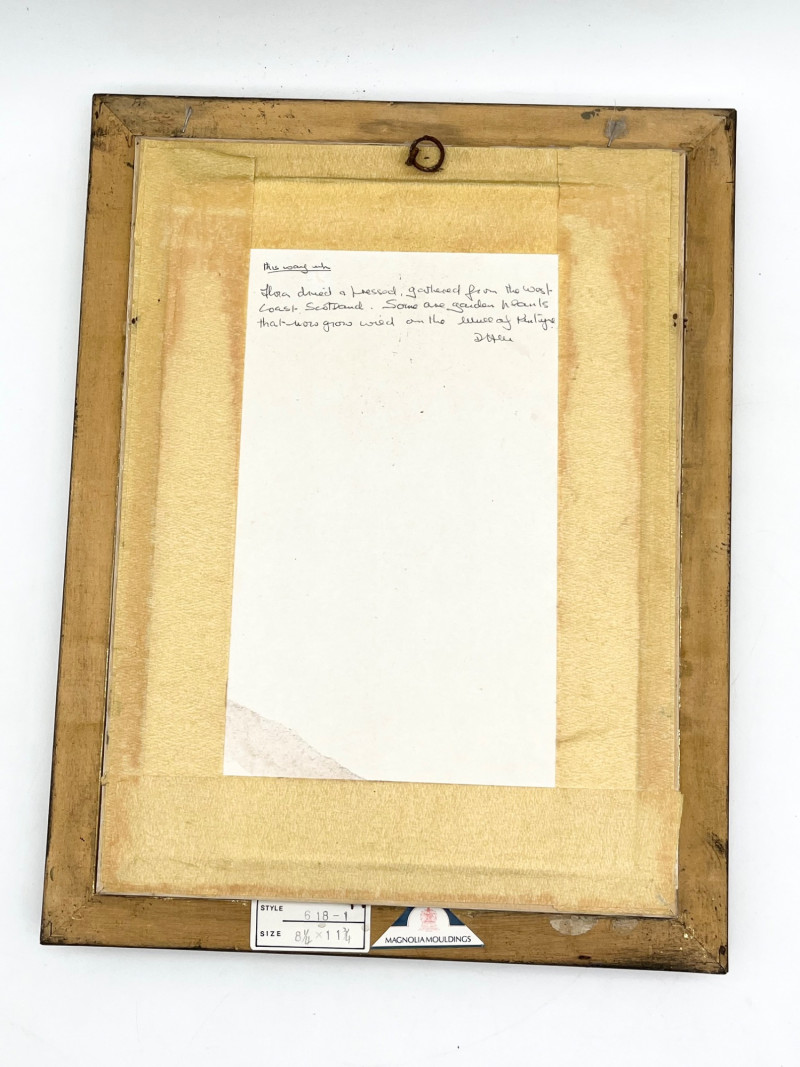 this way up
Flora dried & pressed, gathered from the West
Coast Scotland. Some are garden plants
that now grow wild on the Mull of Kintyre
STYLE 618-1
SIZE 8½ × 11¾
MAGNOLIA MOULDINGS